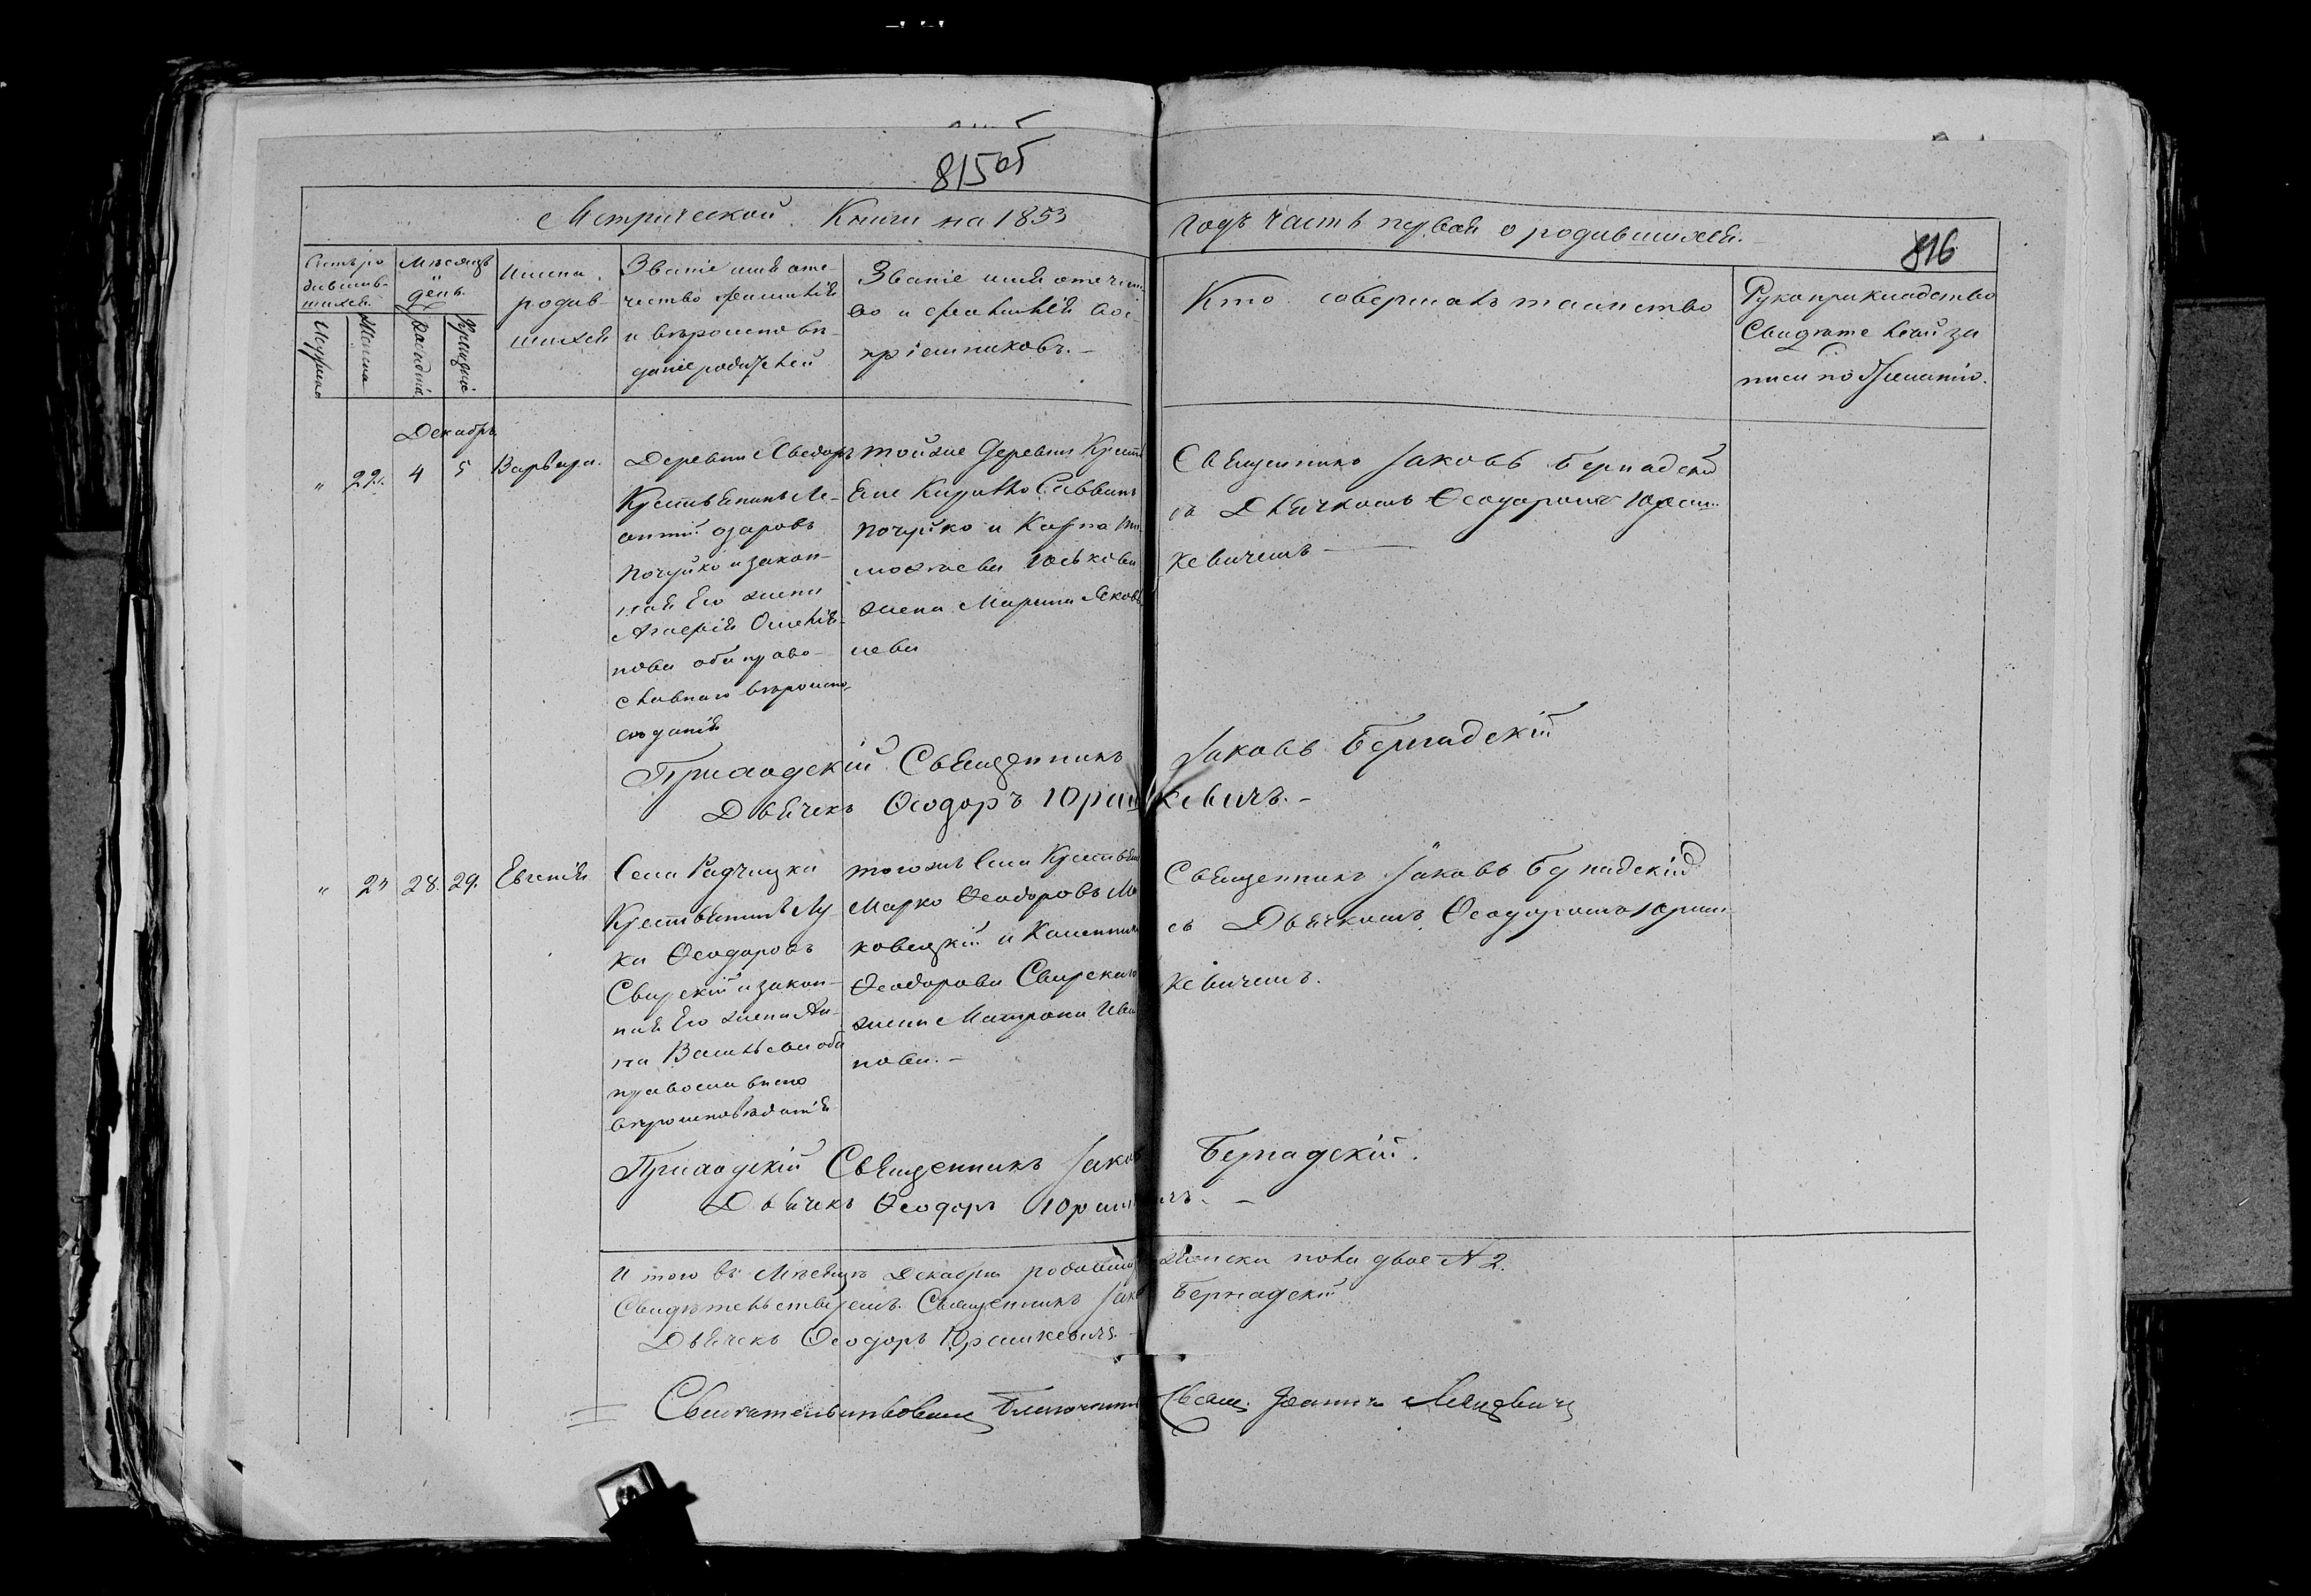 815об
Метрической Книги на 1853
годъ часть первая о родившихся.
816
Счетъ родившихся.
Мѣсяцъ и день.
Имена родившихся
Званіе имя отечество фамилія и вѣроисповѣданіе родителей
Званіе имя отечество и фамилія воспріемниковъ.
Кто совершалъ таинство
Рукоприкладство Свидѣтелей записи по желанію.
Мужска
Женска
Рожденія
Крещенія
Декабрь
" 22. 4 5 Варвара.
Деревни
Крестьянинъ Ле-
онтій
Почуйко и закон-
ная Его жена
нова оба право-
славнаго вѣроиспо-
вѣданія
тойже Деревни Крестья
Саввинъ
Почуйко и Карпа Ти
мохѳеева
жена Марина Яковл
ева
Священникъ Іаковъ Бернадскій
съ Дьячкомъ Ѳеодоромъ Юраш-
кевичемъ
Приходскій Священникъ Іаковъ Бернадскій
Дьячекъ Ѳеодоръ Юрашкевичъ.
" 23 28. 29. Евгенія
Села Радчицка
Крестьянинъ Лу
ка Ѳеодоровъ
Свирскій и закон-
ная Его жена Ан-
на Васильева оба
православнаго
вѣроисповѣданія
тогожъ Села Крестьян
Марко Ѳеодоровъ Ма
ковецкій и
Ѳеодорова Свирскаго
жена Матрона Ива
нова.
Священникъ Іаковъ Бернадскій
съ Дьячкомъ Ѳеодоромъ Юраш-
кевичемъ.
Приходскій Священникъ Іаковъ Бернадскій.
Дьячекъ Ѳеодоръ Юрашкевичъ.
Итого въ Мѣсяцѣ Декабрѣ родившихся женска пола двое № 2.
Свидѣтельствуемъ. Священникъ Іаковъ Бернадскій
Дьячекъ Ѳеодоръ Юрашкевичъ.
Свидѣтельствовалъ Благочинный Свящ. Іоаннъ